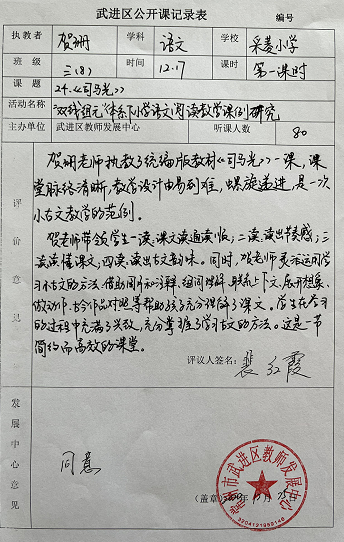 武进区公开课记录表
编号
执教者 贺珊 学科 语文 学校 采菱小学
班级 三(8) 时间 12.17 课时 第一课时
课题 24.《司马光》
活动名称 "双线组元"体系下小学语文阅读教学课例研究
主办单位 武进区教师发展中心 听课人数 80
评价意见
贺珊老师执教了统编版教材《司马光》一课,课
堂脉络清晰,教学设计由易到难,螺旋递进,是一次
小古文教学的范例。
贺老师带领学生一读,课文读通读顺;二读,读出节奏感;三
读读懂课文,四读,读出古文韵味。同时,贺老师灵活运用学
习小古文的方法,借助图片和注释、组词理解、联系上下文、展开想象、
做动作、古今作品对照等帮助孩子充分理解了课文。学生在学习
的过程中充满了兴致,充分掌握了学习古文的方法。这是一节
简约而高效的课堂。
评议人签名: 裴红霞
发展中心意见
同意
(盖章)
常州市武进区教师发展中心